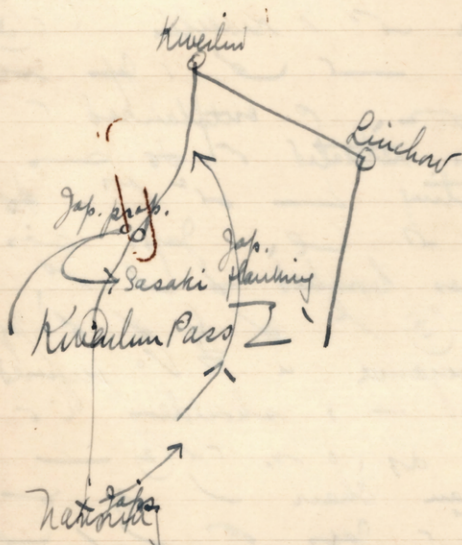 Kweilin
Liuchow
Jap. prop.
Jap.
flanking
Sasaki
Kwenlun Pass
Japs
Nanning